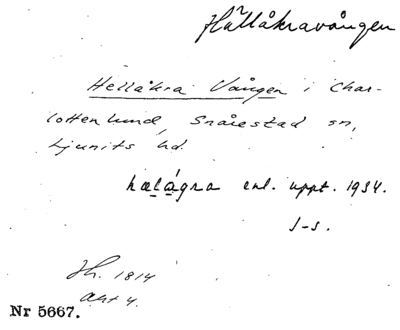 Hällåkravången
Hellåkra Vången i Char-
lottenlund, Snårestad sn,
Ljunits hd.
hælågra enl. uppt. 1934.
J-s.
Jh. 1814
akt 4.
Nr 5667.